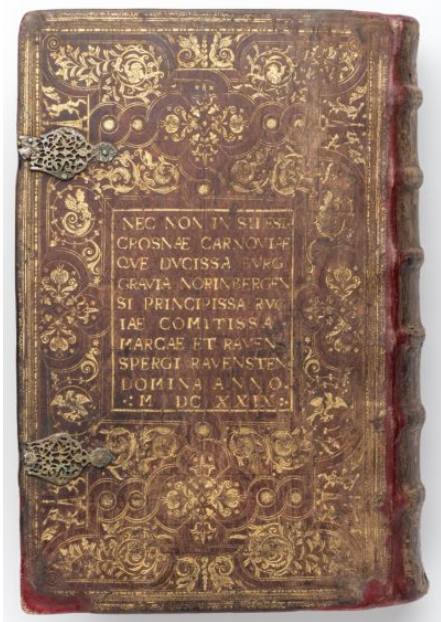 NEC NON IN SILESI
CROSNÆ CARNOVIÆ
QVE DVCISSA BVRG
GRAVIA NORINBERGEN
SI PRINCIPISSA RVG
IAE COMITISSA
MARCAE ET RAVEN
SPERGI RAVENSTEN
DOMINA ANNO.
:M DC XXIX: